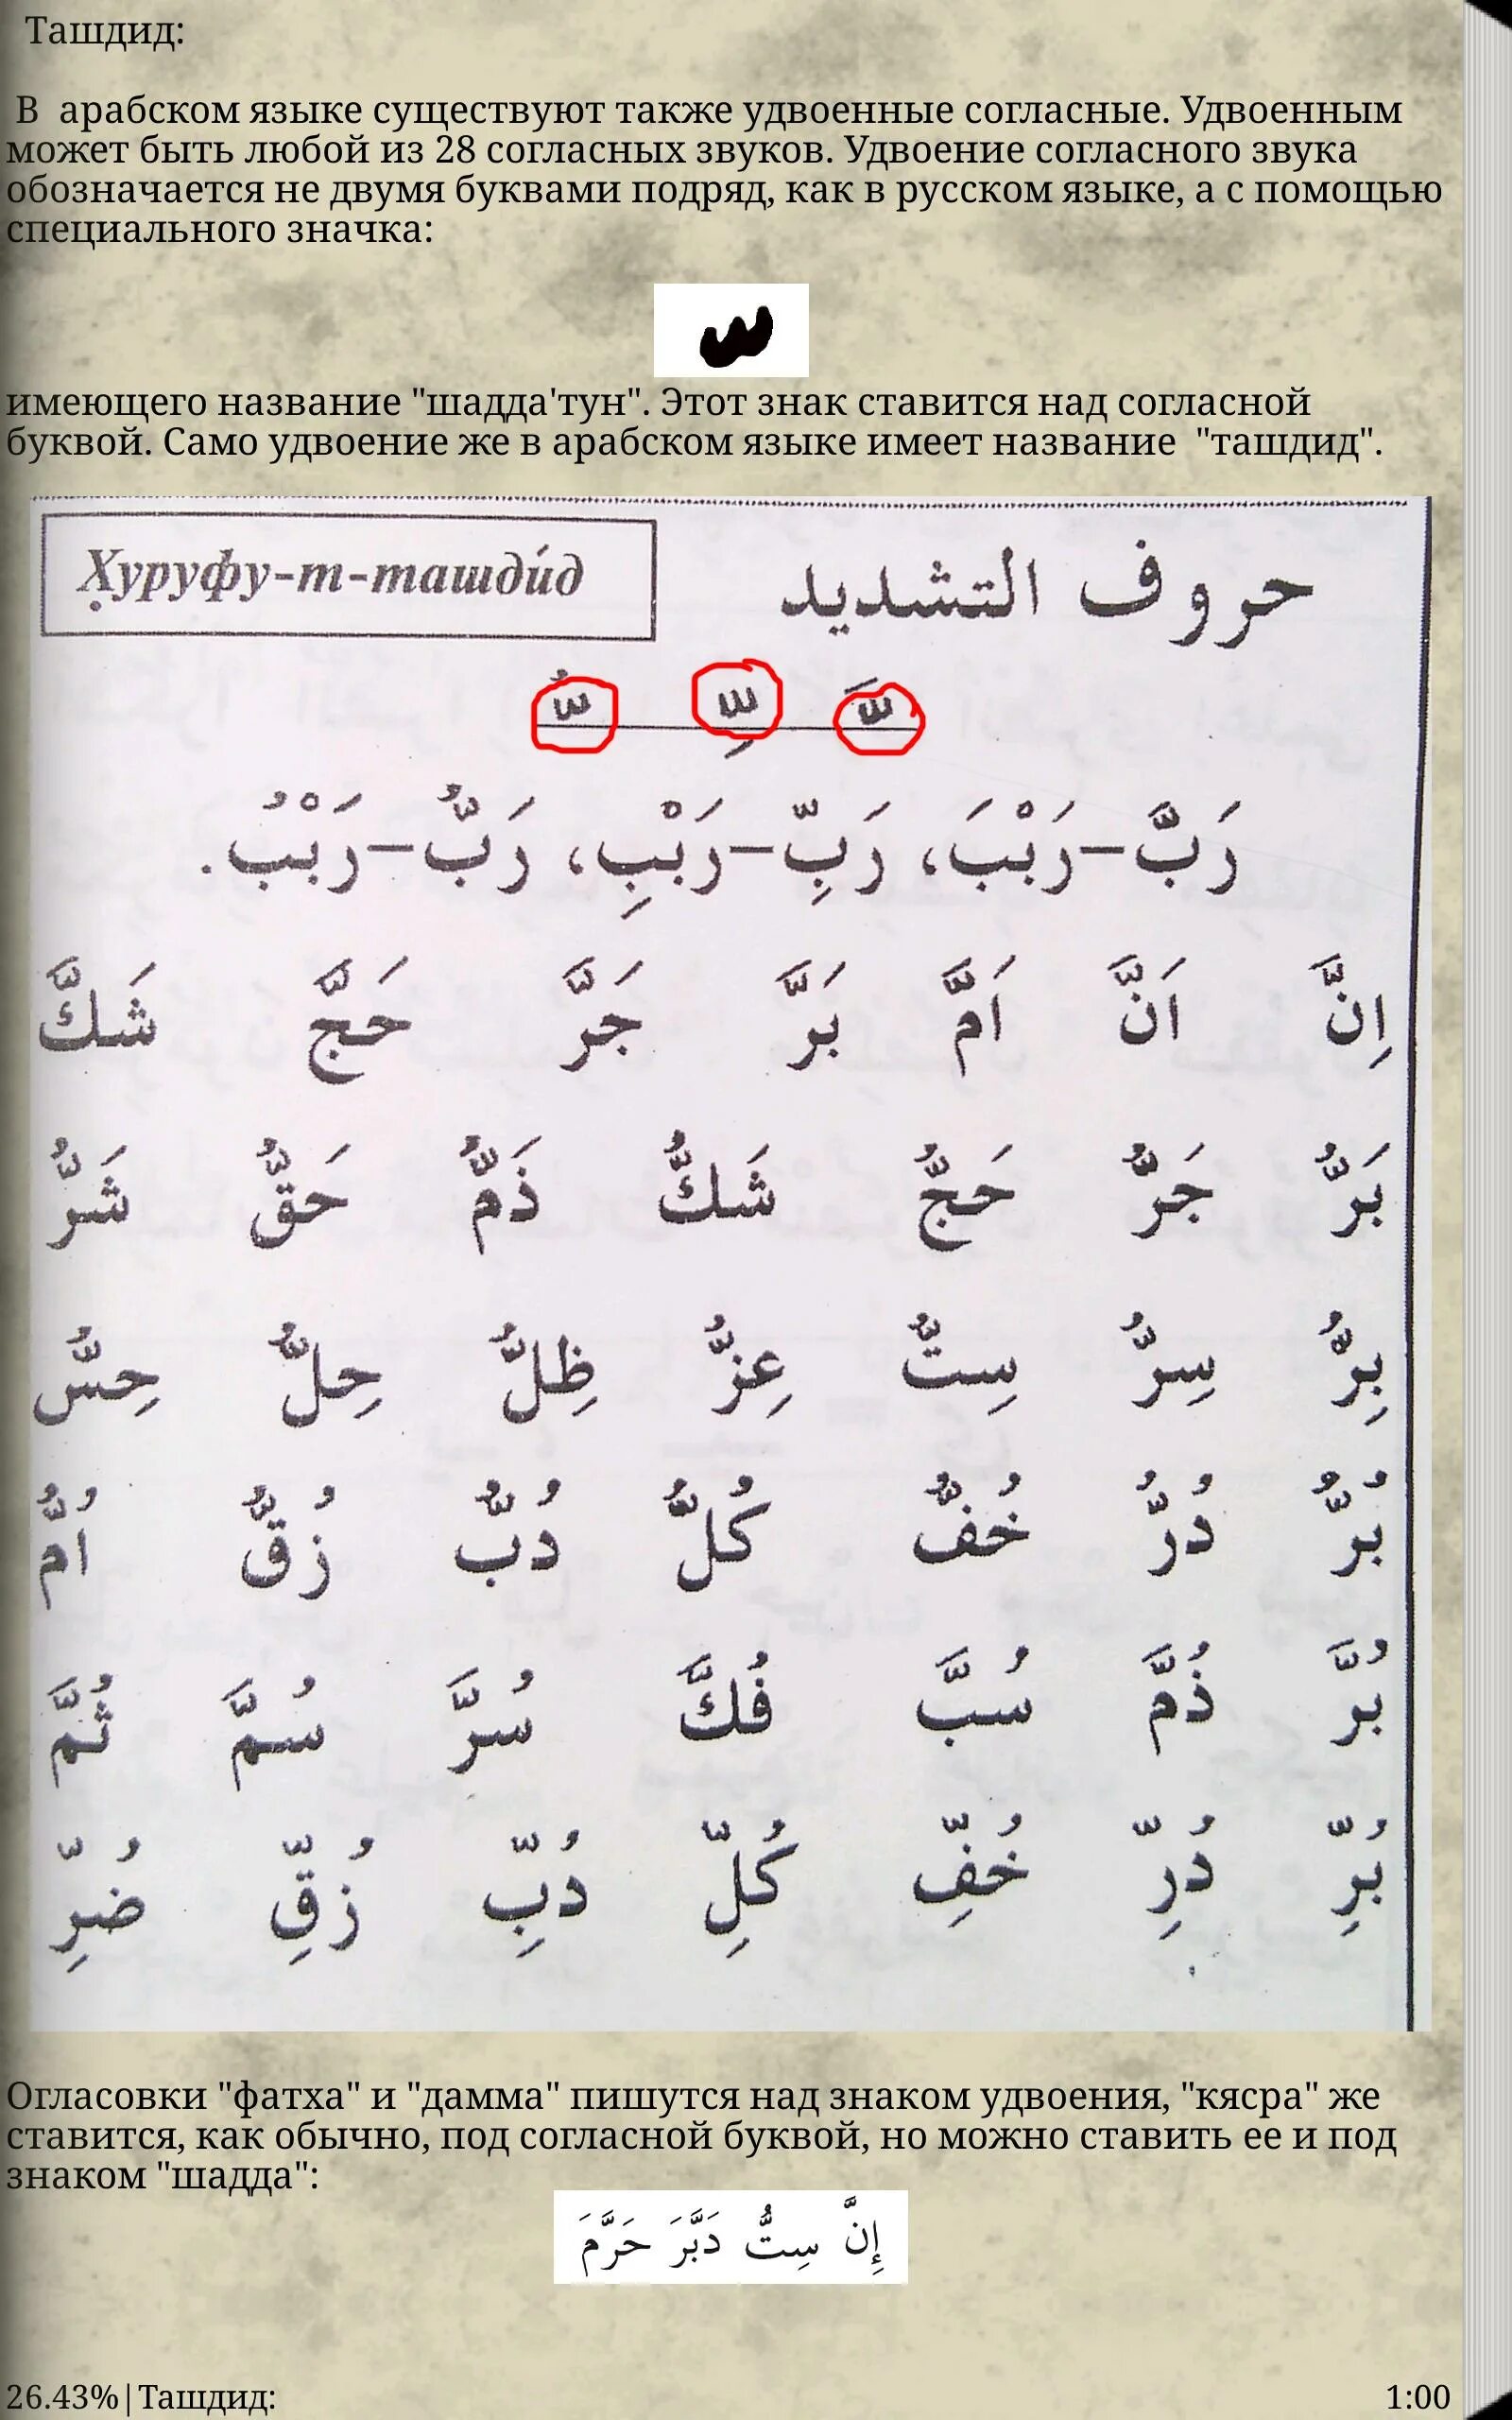 Ташдид:
В арабском языке существуют также удвоенные согласные. Удвоенным
может быть любой из 28 согласных звуков. Удвоение согласного звука
обозначается не двумя буквами подряд, как в русском языке, а с помощью
специального значка:
ّ
имеющего название "шадда'тун". Этот знак ставится над согласной
буквой. Само удвоение же в арабском языке имеет название "ташдид".
Х̣уруфу-т-ташди́д
حروف التشديد
ـَّـ ـِّـ ـُّـ
رَبَّ–رَبْبَ، رَبِّ–رَبْبِ، رَبُّ–رَبْبُ.
اِنَّ اَنَّ اَمَّ بَرَّ جَرَّ حَجَّ شَكَّ
بَرُّ جَرُّ حَجُّ شَكُّ ذَمُّ حَقُّ شَرُّ
بِرُّ سِرُّ سِتُّ عِزُّ ظِلُّ حِلُّ حِسُّ
بُرُّ دُرُّ خُفُّ كُلُّ دُبُّ زُقُّ اُمُّ
بُرَّ ذُمَّ سُبَّ فُكَّ سُرَّ سُمَّ ثُمَّ
بُرِّ دُرِّ خُفِّ كُلِّ دُبِّ زُقِّ ضُرِّ
Огласовки "фатха" и "дамма" пишутся над знаком удвоения, "кясра" же
ставится, как обычно, под согласной буквой, но можно ставить ее и под
знаком "шадда":
إِنَّ سِتُّ دَبَّرَ حَرَّمَ
26.43%|Ташдид:
1:00